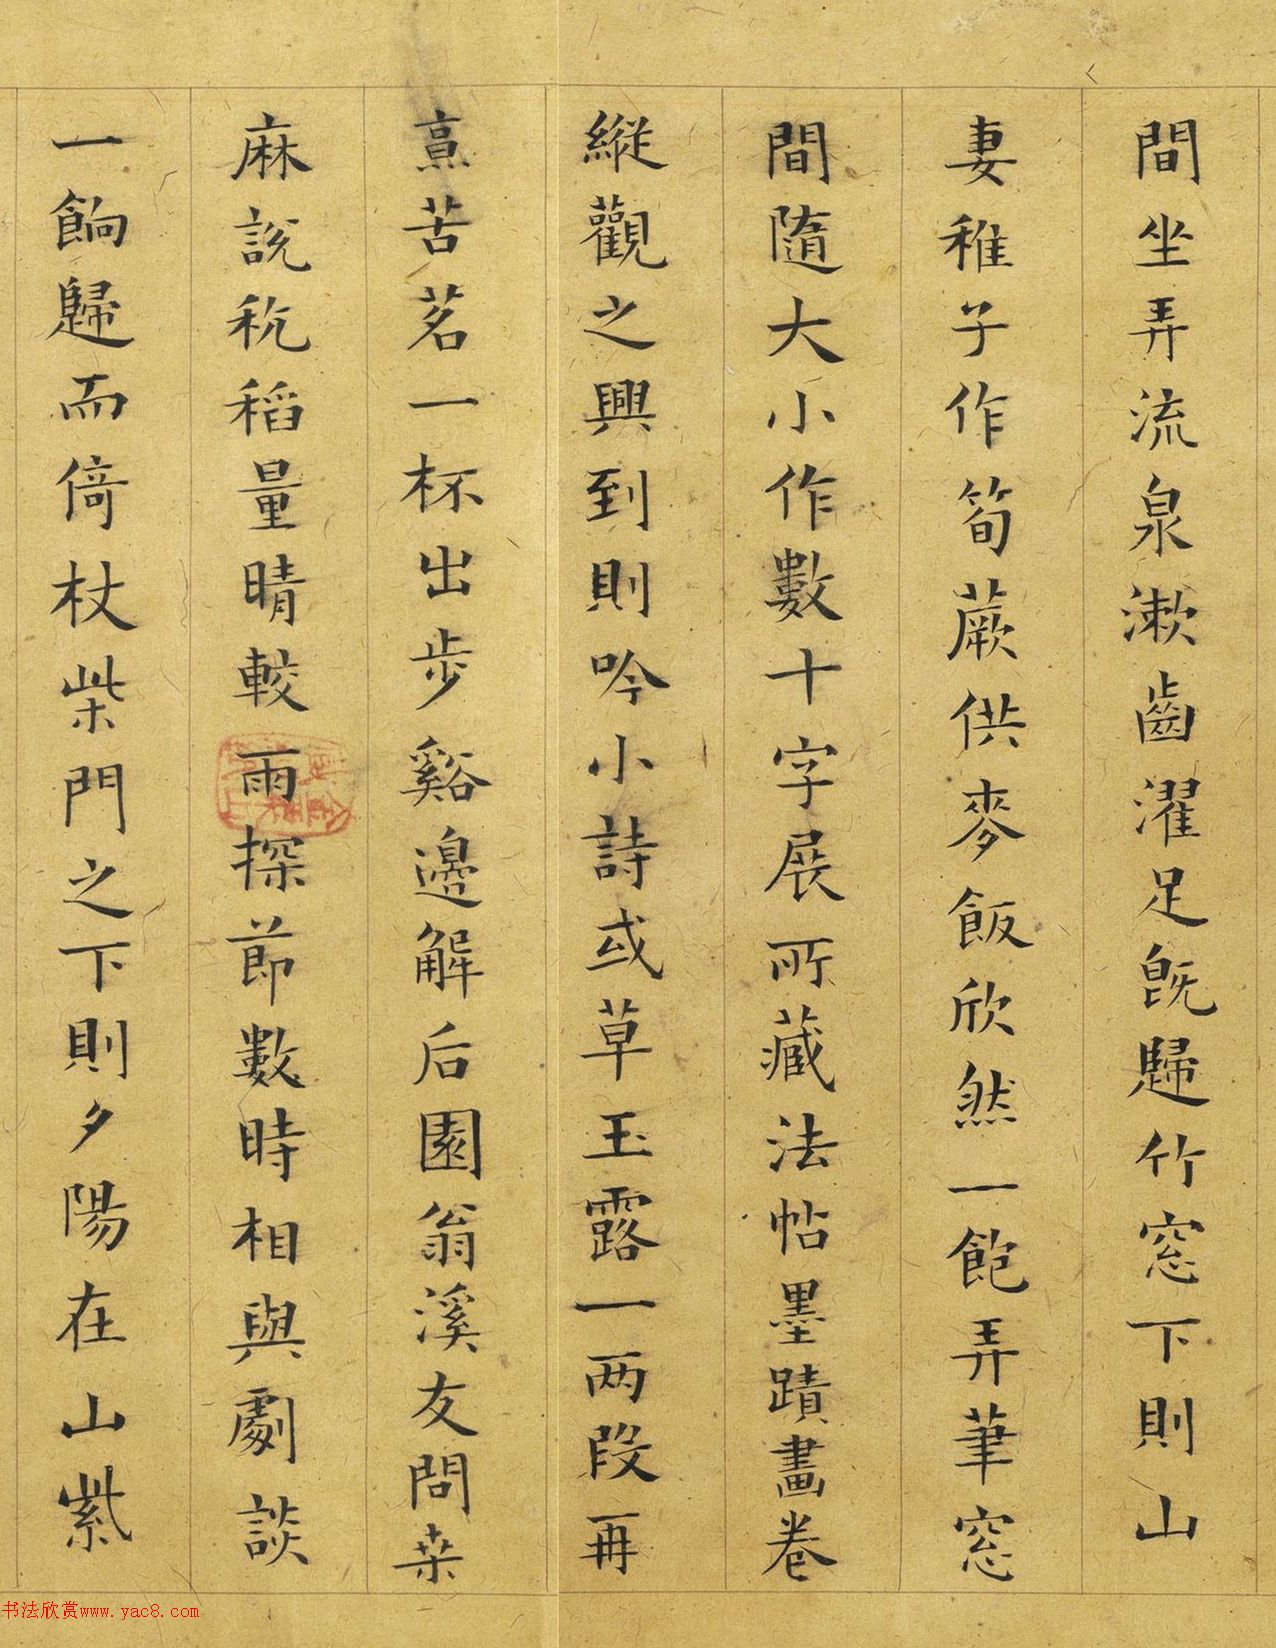 間坐弄流泉漱齒濯足既歸竹窓下則山
妻稚子作筍蕨供麥飯欣然一飽弄筆窓
間隨大小作數十字展所藏法帖墨蹟畫卷
縱觀之興到則吟小詩或草玉露一两段再
烹苦茗一杯出步谿邊解后園翁溪友問桒
麻說秔稻量晴較雨探節數時相與劇談
一餉歸而倚杖柴門之下則夕陽在山紫
书法欣赏www.yac8.com